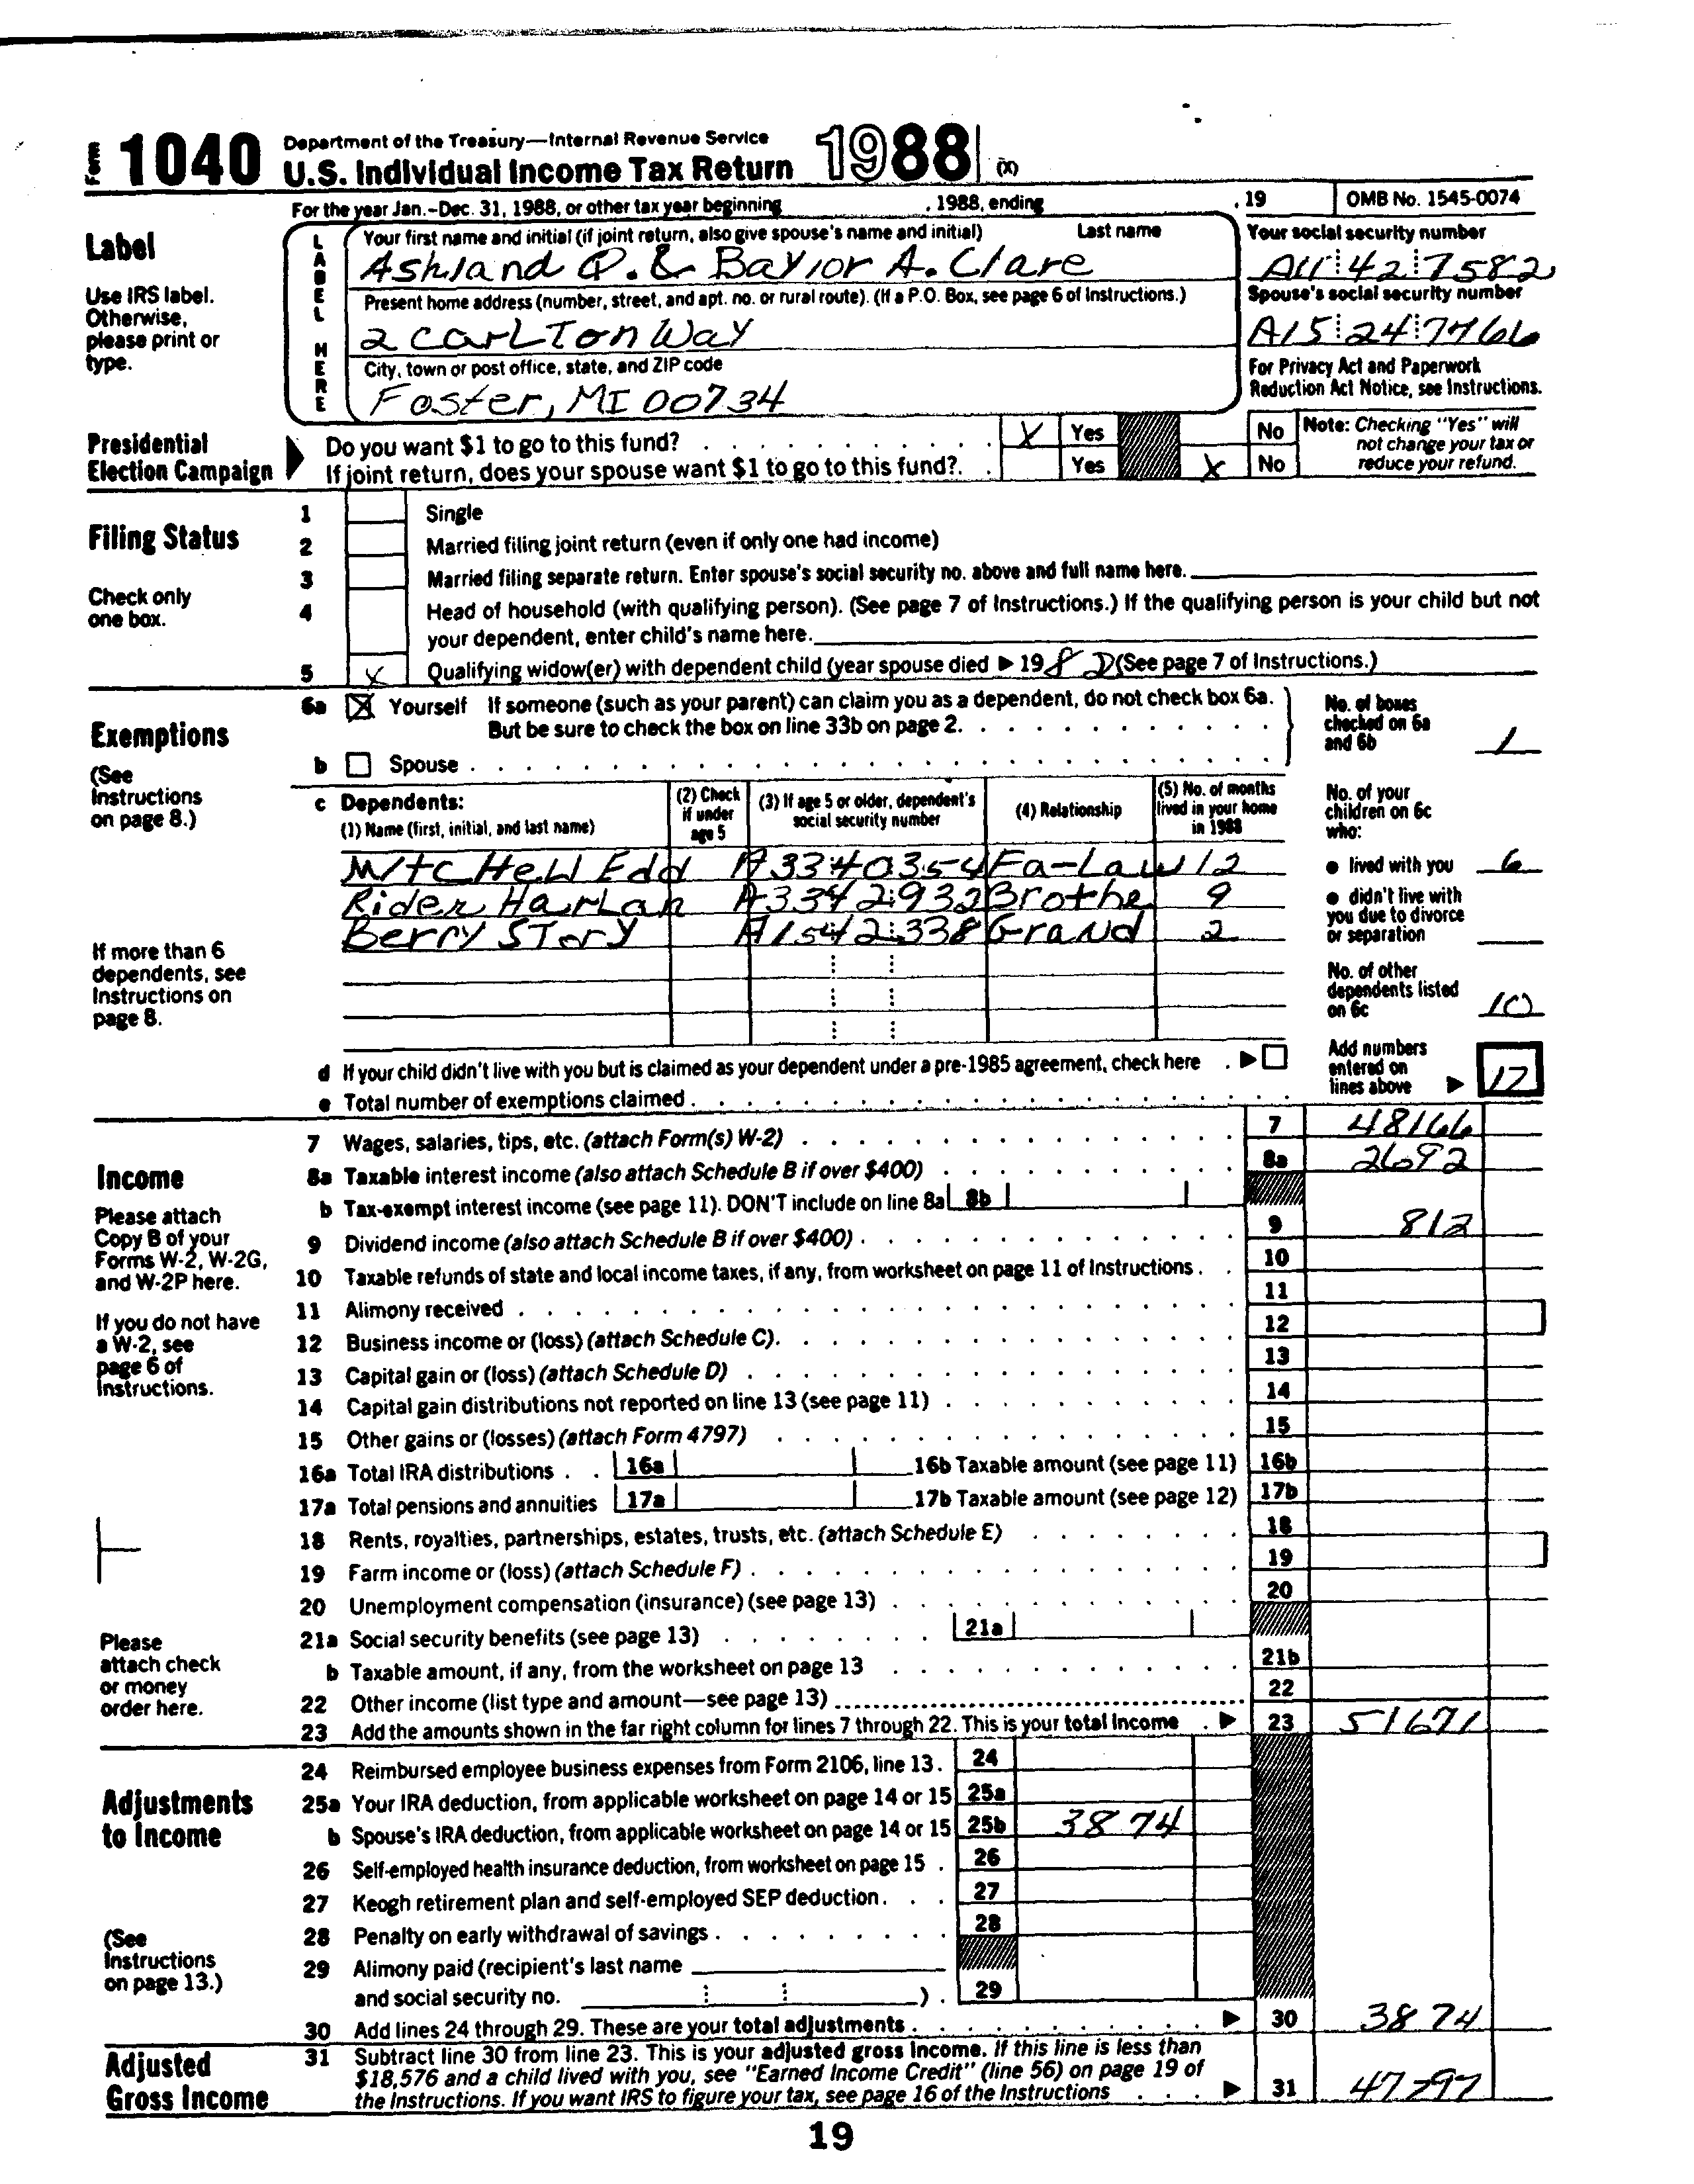 Form 1040 Department of the Treasury—Internal Revenue Service
U.S. Individual Income Tax Return 1988 (X)
For the year Jan.-Dec. 31, 1988, or other tax year beginning , 1988, ending , 19 OMB No. 1545-0074
Label
Use IRS label. Otherwise, please print or type.
LABEL HERE
Your first name and initial (if joint return, also give spouse's name and initial) Last name
Ashland Q. & Baylor A. Clare
Your social security number
A11 42 7582
Present home address (number, street, and apt. no. or rural route). (If a P.O. Box, see page 6 of Instructions.)
2 CarLTon Way
Spouse's social security number
A15 24 7766
City, town or post office, state, and ZIP code
Foster, MI 00734
For Privacy Act and Paperwork Reduction Act Notice, see Instructions.
Presidential Election Campaign
Do you want $1 to go to this fund? X Yes No
If joint return, does your spouse want $1 to go to this fund?. Yes X No
Note: Checking "Yes" will not change your tax or reduce your refund.
Filing Status
Check only one box.
1 Single
2 Married filing joint return (even if only one had income)
3 Married filing separate return. Enter spouse's social security no. above and full name here.
4 Head of household (with qualifying person). (See page 7 of Instructions.) If the qualifying person is your child but not
your dependent, enter child's name here.
5 X Qualifying widow(er) with dependent child (year spouse died ▶ 19 8 (See page 7 of Instructions.)
Exemptions
(See Instructions on page 8.)
6a X Yourself If someone (such as your parent) can claim you as a dependent, do not check box 6a.
But be sure to check the box on line 33b on page 2.
b Spouse
No. of boxes checked on 6a and 6b 1
c Dependents:
(1) Name (first, initial, and last name) (2) Check if under age 5 (3) If age 5 or older, dependent's social security number (4) Relationship (5) No. of months lived in your home in 1988
MitcHell Edd A33 40 354 Fa-Law 12
Rider HarLan A33 42 932 Brothe 9
Berry STory A15 42 338 Grand 2
If more than 6 dependents, see Instructions on page 8.
No. of your children on 6c who:
• lived with you 6
• didn't live with you due to divorce or separation
No. of other dependents listed on 6c 10
d If your child didn't live with you but is claimed as your dependent under a pre-1985 agreement, check here . ▶
e Total number of exemptions claimed
Add numbers entered on lines above ▶ 17
Income
Please attach Copy B of your Forms W-2, W-2G, and W-2P here.
If you do not have a W-2, see page 6 of Instructions.
Please attach check or money order here.
7 Wages, salaries, tips, etc. (attach Form(s) W-2) 7 48166
8a Taxable interest income (also attach Schedule B if over $400) 8a 2692
b Tax-exempt interest income (see page 11). DON'T include on line 8a 8b
9 Dividend income (also attach Schedule B if over $400) 9 812
10 Taxable refunds of state and local income taxes, if any, from worksheet on page 11 of Instructions 10
11 Alimony received 11
12 Business income or (loss) (attach Schedule C). 12
13 Capital gain or (loss) (attach Schedule D) 13
14 Capital gain distributions not reported on line 13 (see page 11) 14
15 Other gains or (losses) (attach Form 4797) 15
16a Total IRA distributions 16a 16b Taxable amount (see page 11) 16b
17a Total pensions and annuities 17a 17b Taxable amount (see page 12) 17b
18 Rents, royalties, partnerships, estates, trusts, etc. (attach Schedule E) 18
19 Farm income or (loss) (attach Schedule F) 19
20 Unemployment compensation (insurance) (see page 13) 20
21a Social security benefits (see page 13) 21a
b Taxable amount, if any, from the worksheet on page 13 21b
22 Other income (list type and amount—see page 13) 22
23 Add the amounts shown in the far right column for lines 7 through 22. This is your total income ▶ 23 51671
Adjustments to Income
(See Instructions on page 13.)
24 Reimbursed employee business expenses from Form 2106, line 13. 24
25a Your IRA deduction, from applicable worksheet on page 14 or 15 25a
b Spouse's IRA deduction, from applicable worksheet on page 14 or 15 25b 3874
26 Self-employed health insurance deduction, from worksheet on page 15 26
27 Keogh retirement plan and self-employed SEP deduction 27
28 Penalty on early withdrawal of savings 28
29 Alimony paid (recipient's last name
and social security no. ) . 29
30 Add lines 24 through 29. These are your total adjustments ▶ 30 3874
Adjusted Gross Income
31 Subtract line 30 from line 23. This is your adjusted gross income. If this line is less than
$18,576 and a child lived with you, see "Earned Income Credit" (line 56) on page 19 of
the Instructions. If you want IRS to figure your tax, see page 16 of the Instructions ▶ 31 47797
19